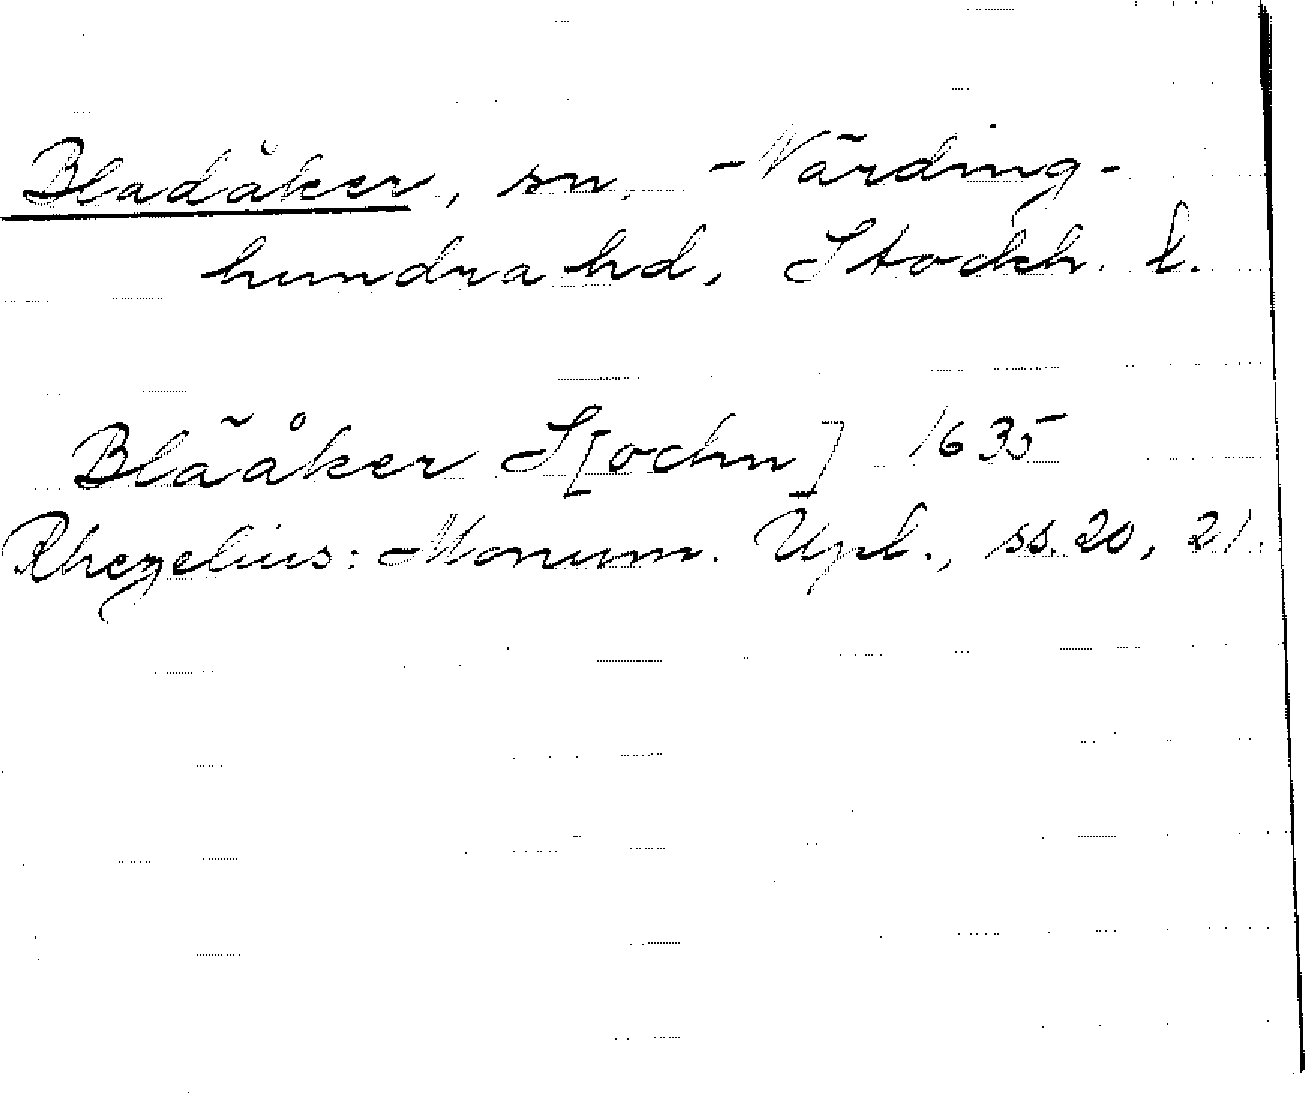 Bladåker, sn, Närding-
hundra hd, Stockh. l.
Blãåker S[ochn] 1635
Rhezelius: Monum. Upl., ss. 20, 21.